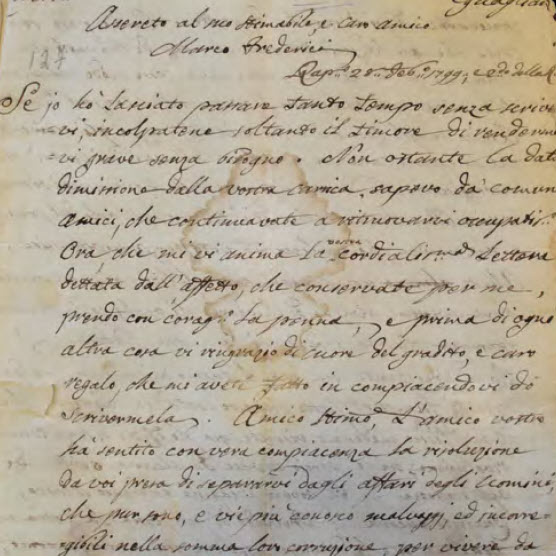 Assereto al suo stimabile, e caro amico
Marco Federici
127
Rap.º 28. Feb.º 1799, e 2.º della R
Se jo hò lasciato passare tanto tempo senza scrive
=vi, incolpatene soltanto il timore di rendermi
=vi grave senza bisogno. Non ostante la data
dimissione dalla vostra carica, sapevo da comuni
Amici, che continuavate a ritrovarvi occupatis.
Ora che mi vi anima la vostra cordialis.ma Lettera
dettata dall'affetto, che conservate per me,
prendo con corag.º la penna, e prima di ogni
altra cosa vi ringrazio di cuore del gradito, e caro
regalo, che mi avete fatto in compiacendovi di
scrivermela. Amico stimo, L'amico vostro
hà sentito con vera compiacenza la risoluzione
da voi presa di separarvi dagli affari degli Uomini,
che pur sono, e vie più conosco malvaggi, ed incorre=
gibili nella somma loro corruzione, per vivere da